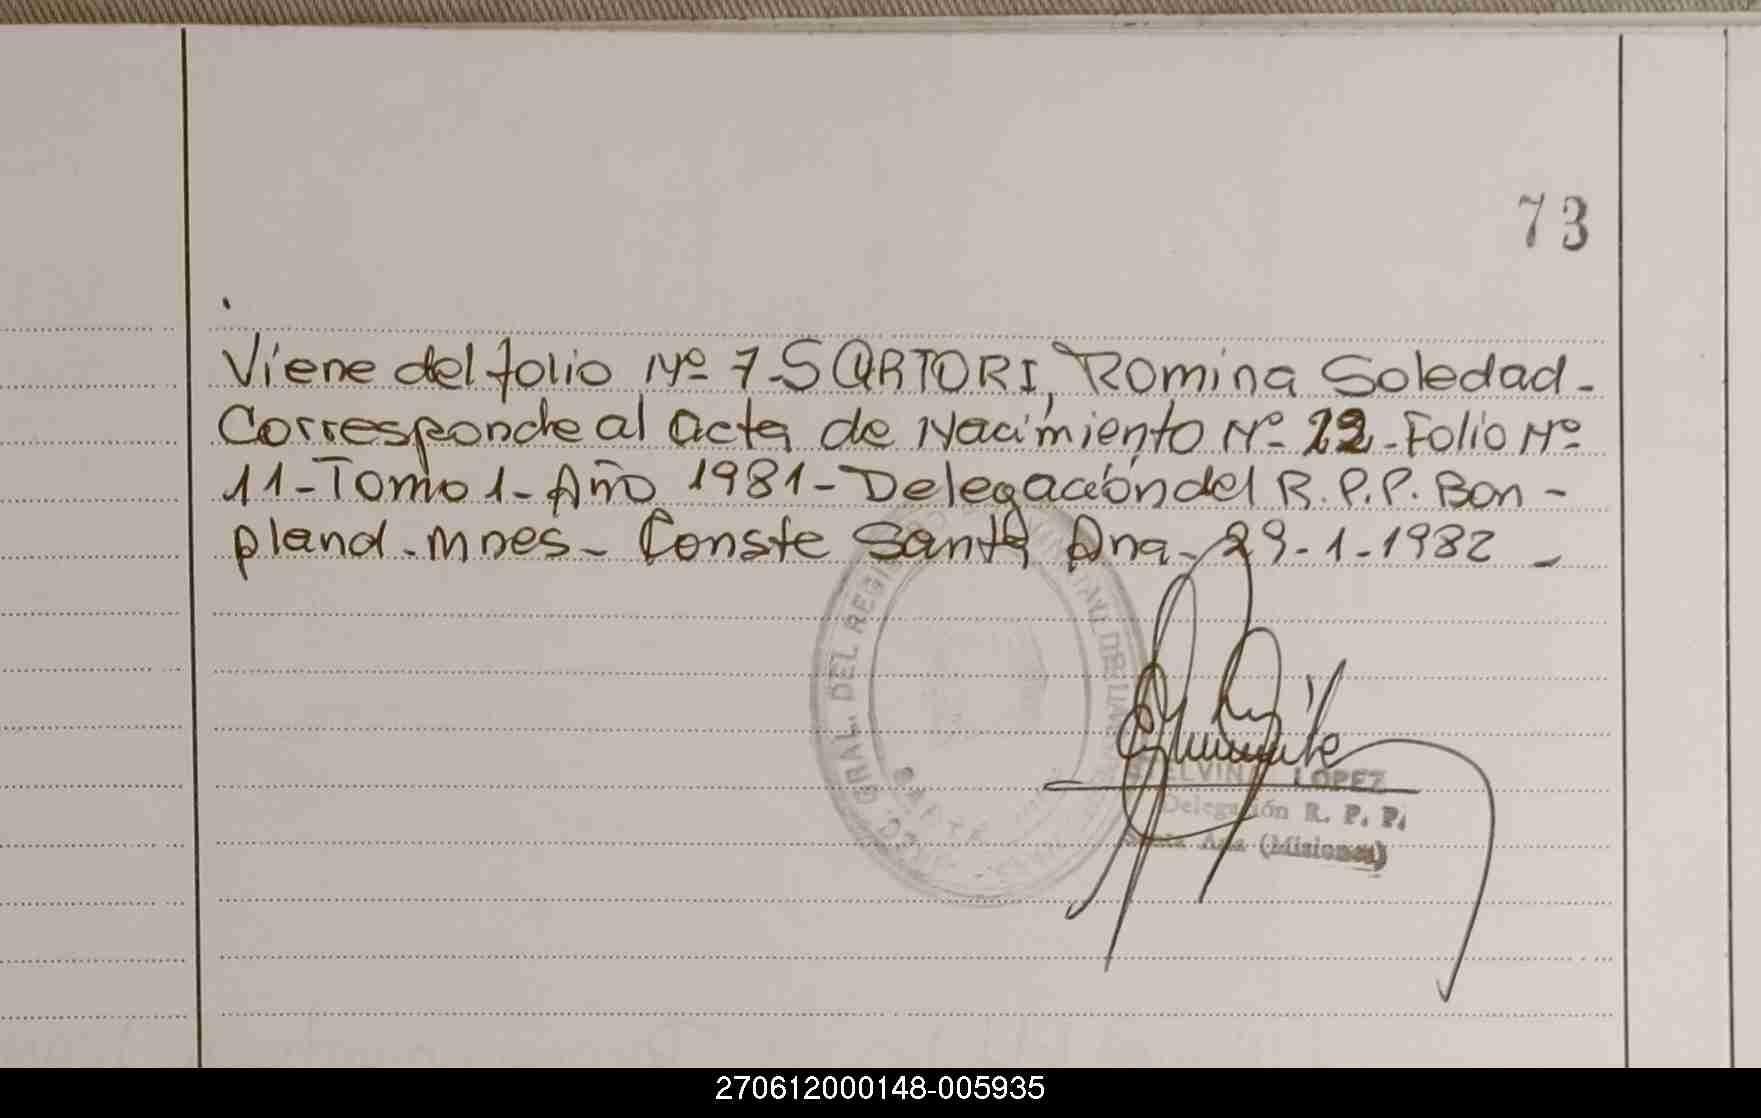 73
Viene del folio Nº 7-SARTORI, Romina Soledad-
Corresponde al acta de Nacimiento Nº 22-Folio Nº
11-Tomo 1-Año 1981-Delegación del R.P.P. Bon-
pland-Mnes- Conste Santa Ana-29-1-1982-
GRAL. DEL REGISTRO
LOPEZ
Delegación R. P. P.
Santa Ana (Misiones)
270612000148-005935